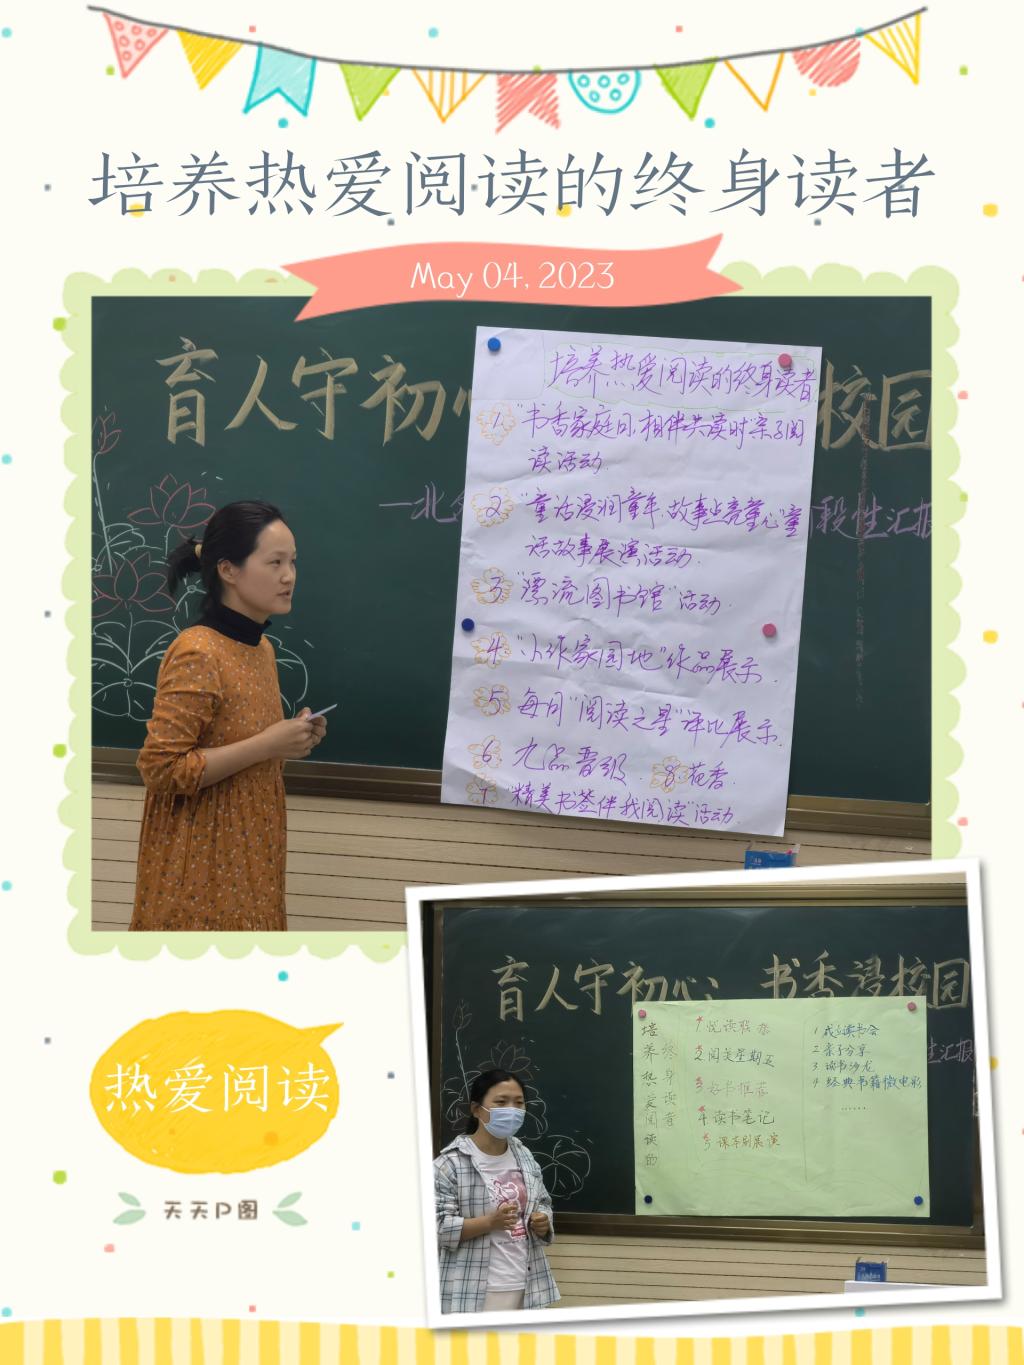 培养热爱阅读的终身读者
May 04, 2023
育人守初心
校园
一北
段性汇报
培养热爱阅读的终身读者
1. "书香家庭日,相伴共读时"亲子阅
读活动.
2. "童话浸润童年,故事点亮童心"童
话故事展演活动.
3 "漂流图书馆"活动.
4. "小作家园地"作品展示.
5. 每月"阅读之星"评比展示.
6 九品晋级. 8. 花香.
7. "精美书签伴我阅读"活动.
育人守初心 书香浸校园
生汇报
培养热爱阅读的
终身读者
1 悦读联办
2 阅美星期五
3 好书推荐
4 读书笔记
5 课本剧展演
1 成立读书会
2 亲子分享
3 读书沙龙
4 经典书籍微电影
......
热爱阅读
天天P图